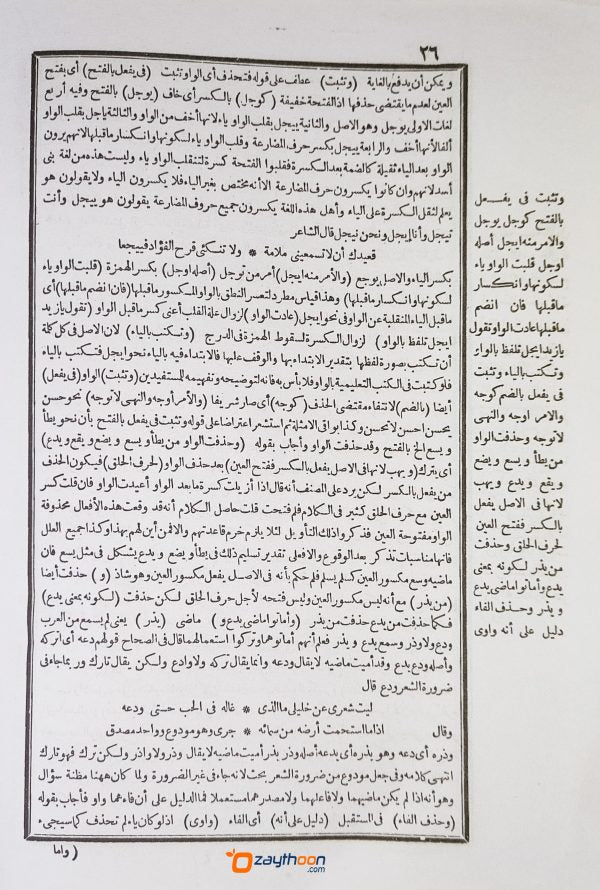 ٢٦
ويمكن أن يدفع بالغاية (وتثبت) عطف على قوله فتحذف أى الواو تثبت (فى يفعل بالفتح) أى بفتح
العين لعدم ما يقتضى حذفها اذ الفتحة خفيفة (كوجل) بالكسر أى خاف (يوجل) بالفتح وفيه أربع
لغات الاولى يوجل وهو الاصل والثانية ييجل بقلب الواو ياء لانها أخف من الواو والثالثة ياجل بقلب الواو
ألفا لأنها أخف والرابعة ييجل بكسر حرف المضارعة وقلب الواو ياء لسكونها وانكسار ماقبلها لانهم يرون
الواو بعد الياء ثقيلة كالضمة بعد الكسرة فقلبوا الفتحة كسرة لتنقلب الواو ياء وليست هذه من لغة بنى
أسد لانهم وان كانوا يكسرون حرف المضارعة الا أنه مختص بغير الياء فلا يكسرون الياء ولا يقولون هو
يعلم لثقل الكسرة على الياء وأهل هذه اللغة يكسرون جميع حروف المضارعة يقولون هو ييجل وأنت
تيجل وأنا إيجل ونحن نيجل قال الشاعر
قعيدك أن لا تسمعينى ملامة * ولا تنكئى قرح الفؤاد فييجعا
بكسر الياء والاصل يوجع (والأمر منه ايجل) أمر من توجل (أصله اوجل) بكسر الهمزة (قلبت الواو ياء
لسكونها وانكسار ماقبلها) وهذا قياس مطرد لتعسر النطق بالواو المسكور ماقبلها (فان انضم ماقبلها) أى
ماقبل الياء المنقلبة عن الواو فى نحو ايجل (عادت الواو) لزوال علة القلب أعنى كسر ماقبل الواو (تقول يا زيد
ايجل تلفظ بالواو) لزوال الكسرة لسقوط الهمزة فى الدرج (وتسكتب بالياء) لان الاصل فى كل كلمة
أن تسكتب بصورة لفظها بتقدير الابتداء بها والوقف عليها فالابتداء فيه بالياء نحو ايجل فتسكتب بالياء
فلو كتبت فى الكتب التعليمية بالواو فلا بأس به فانه لتوضيحه وتفهيمه للمستفيدين (وتثبت) الواو (فى يفعل)
أيضا (بالضم) لانتفاء مقتضى الحذف (كوجه) أى صار شريفا (والأمر أوجه والنهى لا توجه) نحو حسن
يحسن احسن لا تحسن وكذا بواقى الامثلة ثم استشعر اعتراضا على قوله وتثبت فى يفعل بالفتح بأن نحو يطأ
ويسع الخ بالفتح وقد حذفت الواو وأجاب بقوله (وحذفت الواو من يطأ ويسع ويضع ويقع ويدع)
أى يترك (ويهب لانها فى الاصل يفعل بالكسر ففتح العين) بعد حذف الواو (لحرف الحلق) فيكون الحذف
من يفعل بالكسر لسكن يرد على المصنف أنه قال اذا أزيلت كسرة مابعد الواو أعيدت الواو فان قلت كسر
العين مع حرف الحلق كثير فى السكلام فلم فتحت قلت حاصل السكلام أنه قد وقعت هذه الأفعال محذوفة
الواو مفتوحة العين فذكروا ذلك التأويل لئلا يلزم خرم قاعدتهم والا فمن أين لهم بهذا وكذا جميع العلل
فانها مناسبات تذكر بعد الوقوع والا فعلى تقدير تسليم ذلك فى يطأ ويضع ويدع يشكل فى مثل يسع فان
ماضيه وسع مكسور العين كسلم يسلم فلم حكم بأنه فى الاصل يفعل مكسور العين وهو شاذ (و) حذفت أيضا
(من يذر) مع أنه ليس مكسور العين وليس فتحه لأجل حرف الحلق لسكن حذفت (لسكونه بمعنى يدع)
فكما حذفت من يدع حذفت من يذر (وأماتوا ماضى يدع و) ماضى (يذر) يعنى لم يسمع من العرب
ودع ولا وذر وسمع يدع ويذر فعلم أنهم أماتوهما وتركوا استعمالهما قال فى الصحاح قولهم دعه أى اتركه
وأصله ودع يدع وقد أميت ماضيه لا يقال ودعه وانما يقال تركه ولا وادع ولسكن يقال تارك وربما جاء فى
ضرورة الشعر ودع قال
ليت شعرى عن خليلى ما الذى * غاله فى الحب حستى ودعه
وقال اذا ما استحمت أرضه من سمائه * جرى وهو مودوع وواحد مصدق
وذره أى دعه وهو يذره أى يدعه أصله وذر يذر أميت ماضيه لا يقال وذر ولا واذر ولسكن ترك فهو تارك
انتهى كلامه وفى جعل مودوع من ضرورة الشعر بحث لانه جاء فى غير الضرورة ولما كان ههنا مظنة سؤال
وهو أنه اذا لم يكن ماضيهما ولا فاعلهما ولا مصدرهما مستعملا فما الدليل على أن فاءهما واو فأجاب بقوله
(وحذف الفاء) فى المستقبل (دليل على أنه) أى الفاء (واوى) اذ لو كان ياء لم تحذف كما سيجىء
(واما
وتثبت فى يفـعل
بالفتح كوجل يوجل
والامر منه ايجل أصله
اوجل قلبت الواو ياء
لسكونها وانكسار
ماقبلها فان انضم
ماقبلها عادت الواو تقول
يا زيد ايجل تلفظ بالواو
وتسكتب بالياء وتثبت
فى يفعل بالضم كوجه
والامر اوجه والنهى
لا توجه وحذفت الواو
من يطأ ويسع ويضع
ويقع ويدع ويهب
لانها فى الاصل يفعل
بالكسر ففتح العين
لحرف الحلق وحذفت
من يذر لسكونه بمعنى
يدع وأماتوا ماضى يدع
ويذر وحذف الفاء
دليل على أنه واوى
zaythoon
.com